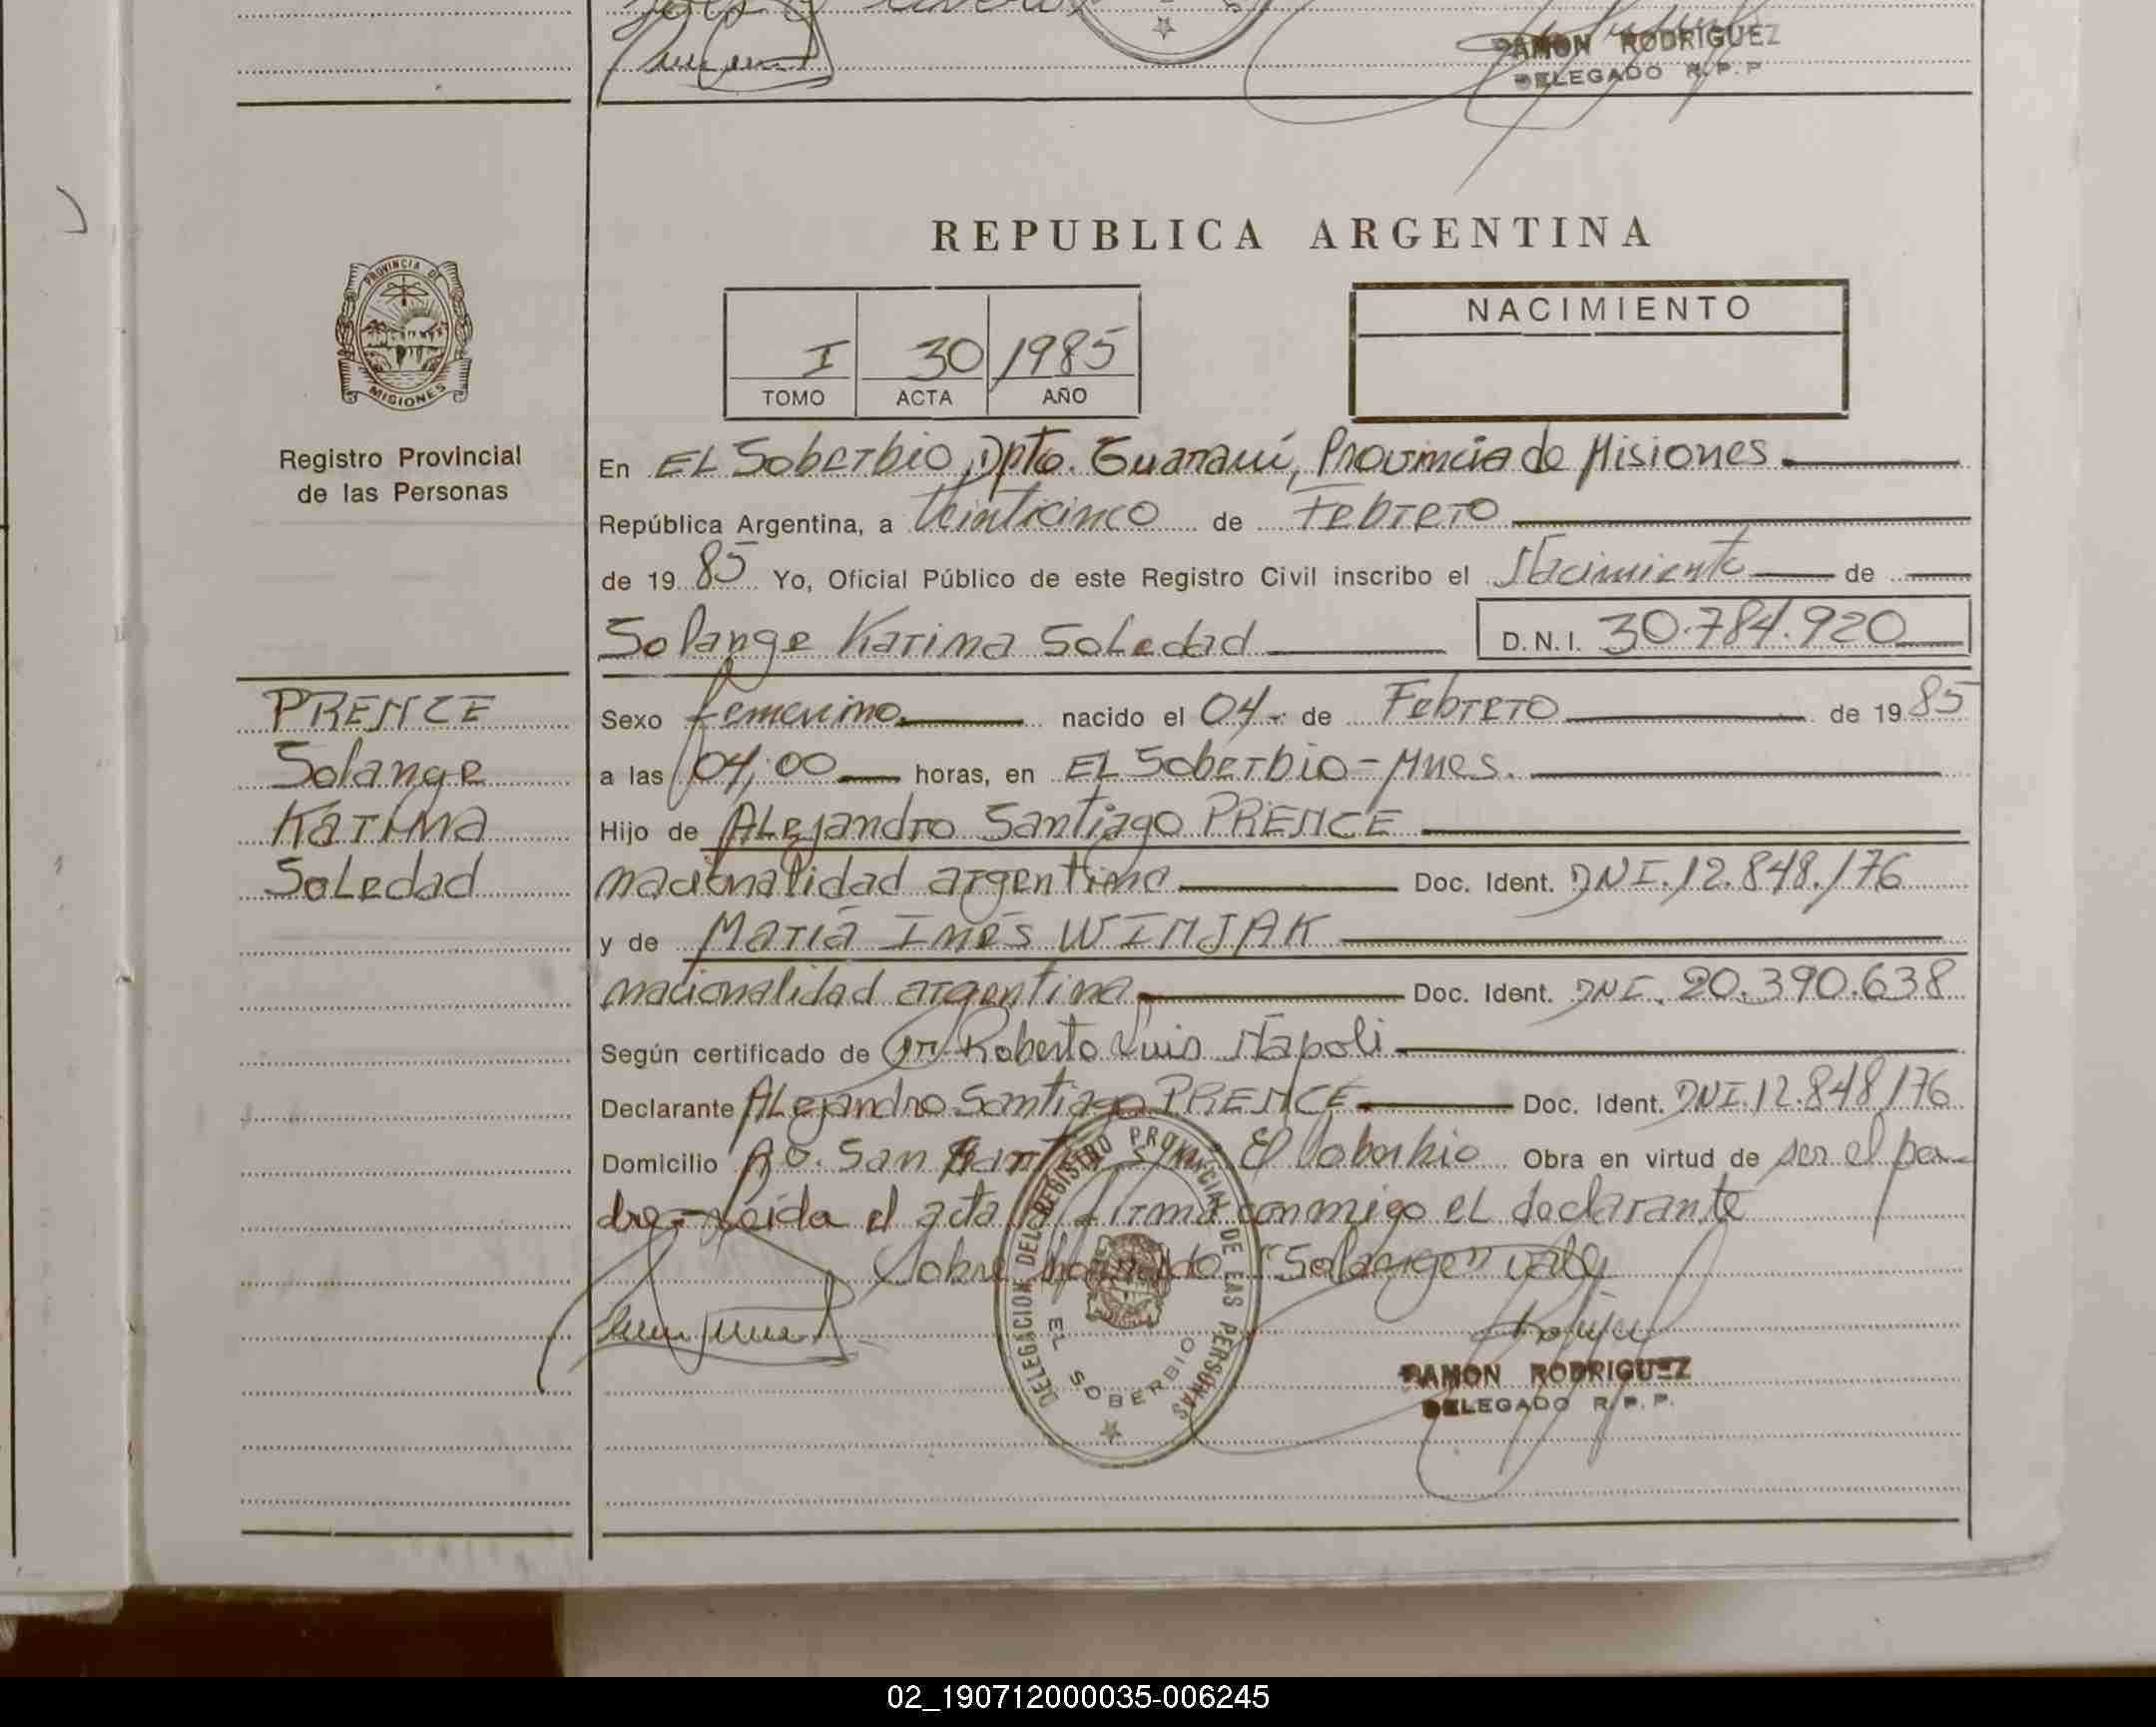 RAMON RODRIGUEZ
DELEGADO R.P.P
REPUBLICA ARGENTINA
PROVINCIA DE
MISIONES
Registro Provincial
de las Personas
I 30 1985
TOMO ACTA AÑO
NACIMIENTO
En EL Soberbio, Dpto. Guaraní, Provincia de Misiones.
República Argentina, a Veinticinco de Febrero
de 19 85 Yo, Oficial Público de este Registro Civil inscribo el Nacimiento de
Solange Karina Soledad D.N.I. 30.784.920
PRENCE
Solange
Karina
Soledad
Sexo femenino. nacido el 04- de Febrero de 19 85
a las 04,00 horas, en EL Soberbio - Mnes.
Hijo de ALejandro Santiago PRENCE
nacionalidad argentina Doc. Ident. DNI. 12.848.176
y de María Inés WINJAK
nacionalidad argentina Doc. Ident. DNI. 20.390.638
Según certificado de Dr. Roberto Luis Napoli
Declarante ALejandro Santiago PRENCE Doc. Ident. DNI. 12.848176
Domicilio Av. San Martín S/N El Soberbio Obra en virtud de ser el pa-
dre - Leída el acta la firma conmigo eL declarante
Sobre borrado "Solange" vale
DELEGACION DEL REGISTRO PROVINCIAL DE LAS PERSONAS
EL SOBERBIO
RAMON RODRIGUEZ
DELEGADO R.P.P.
02_190712000035-006245